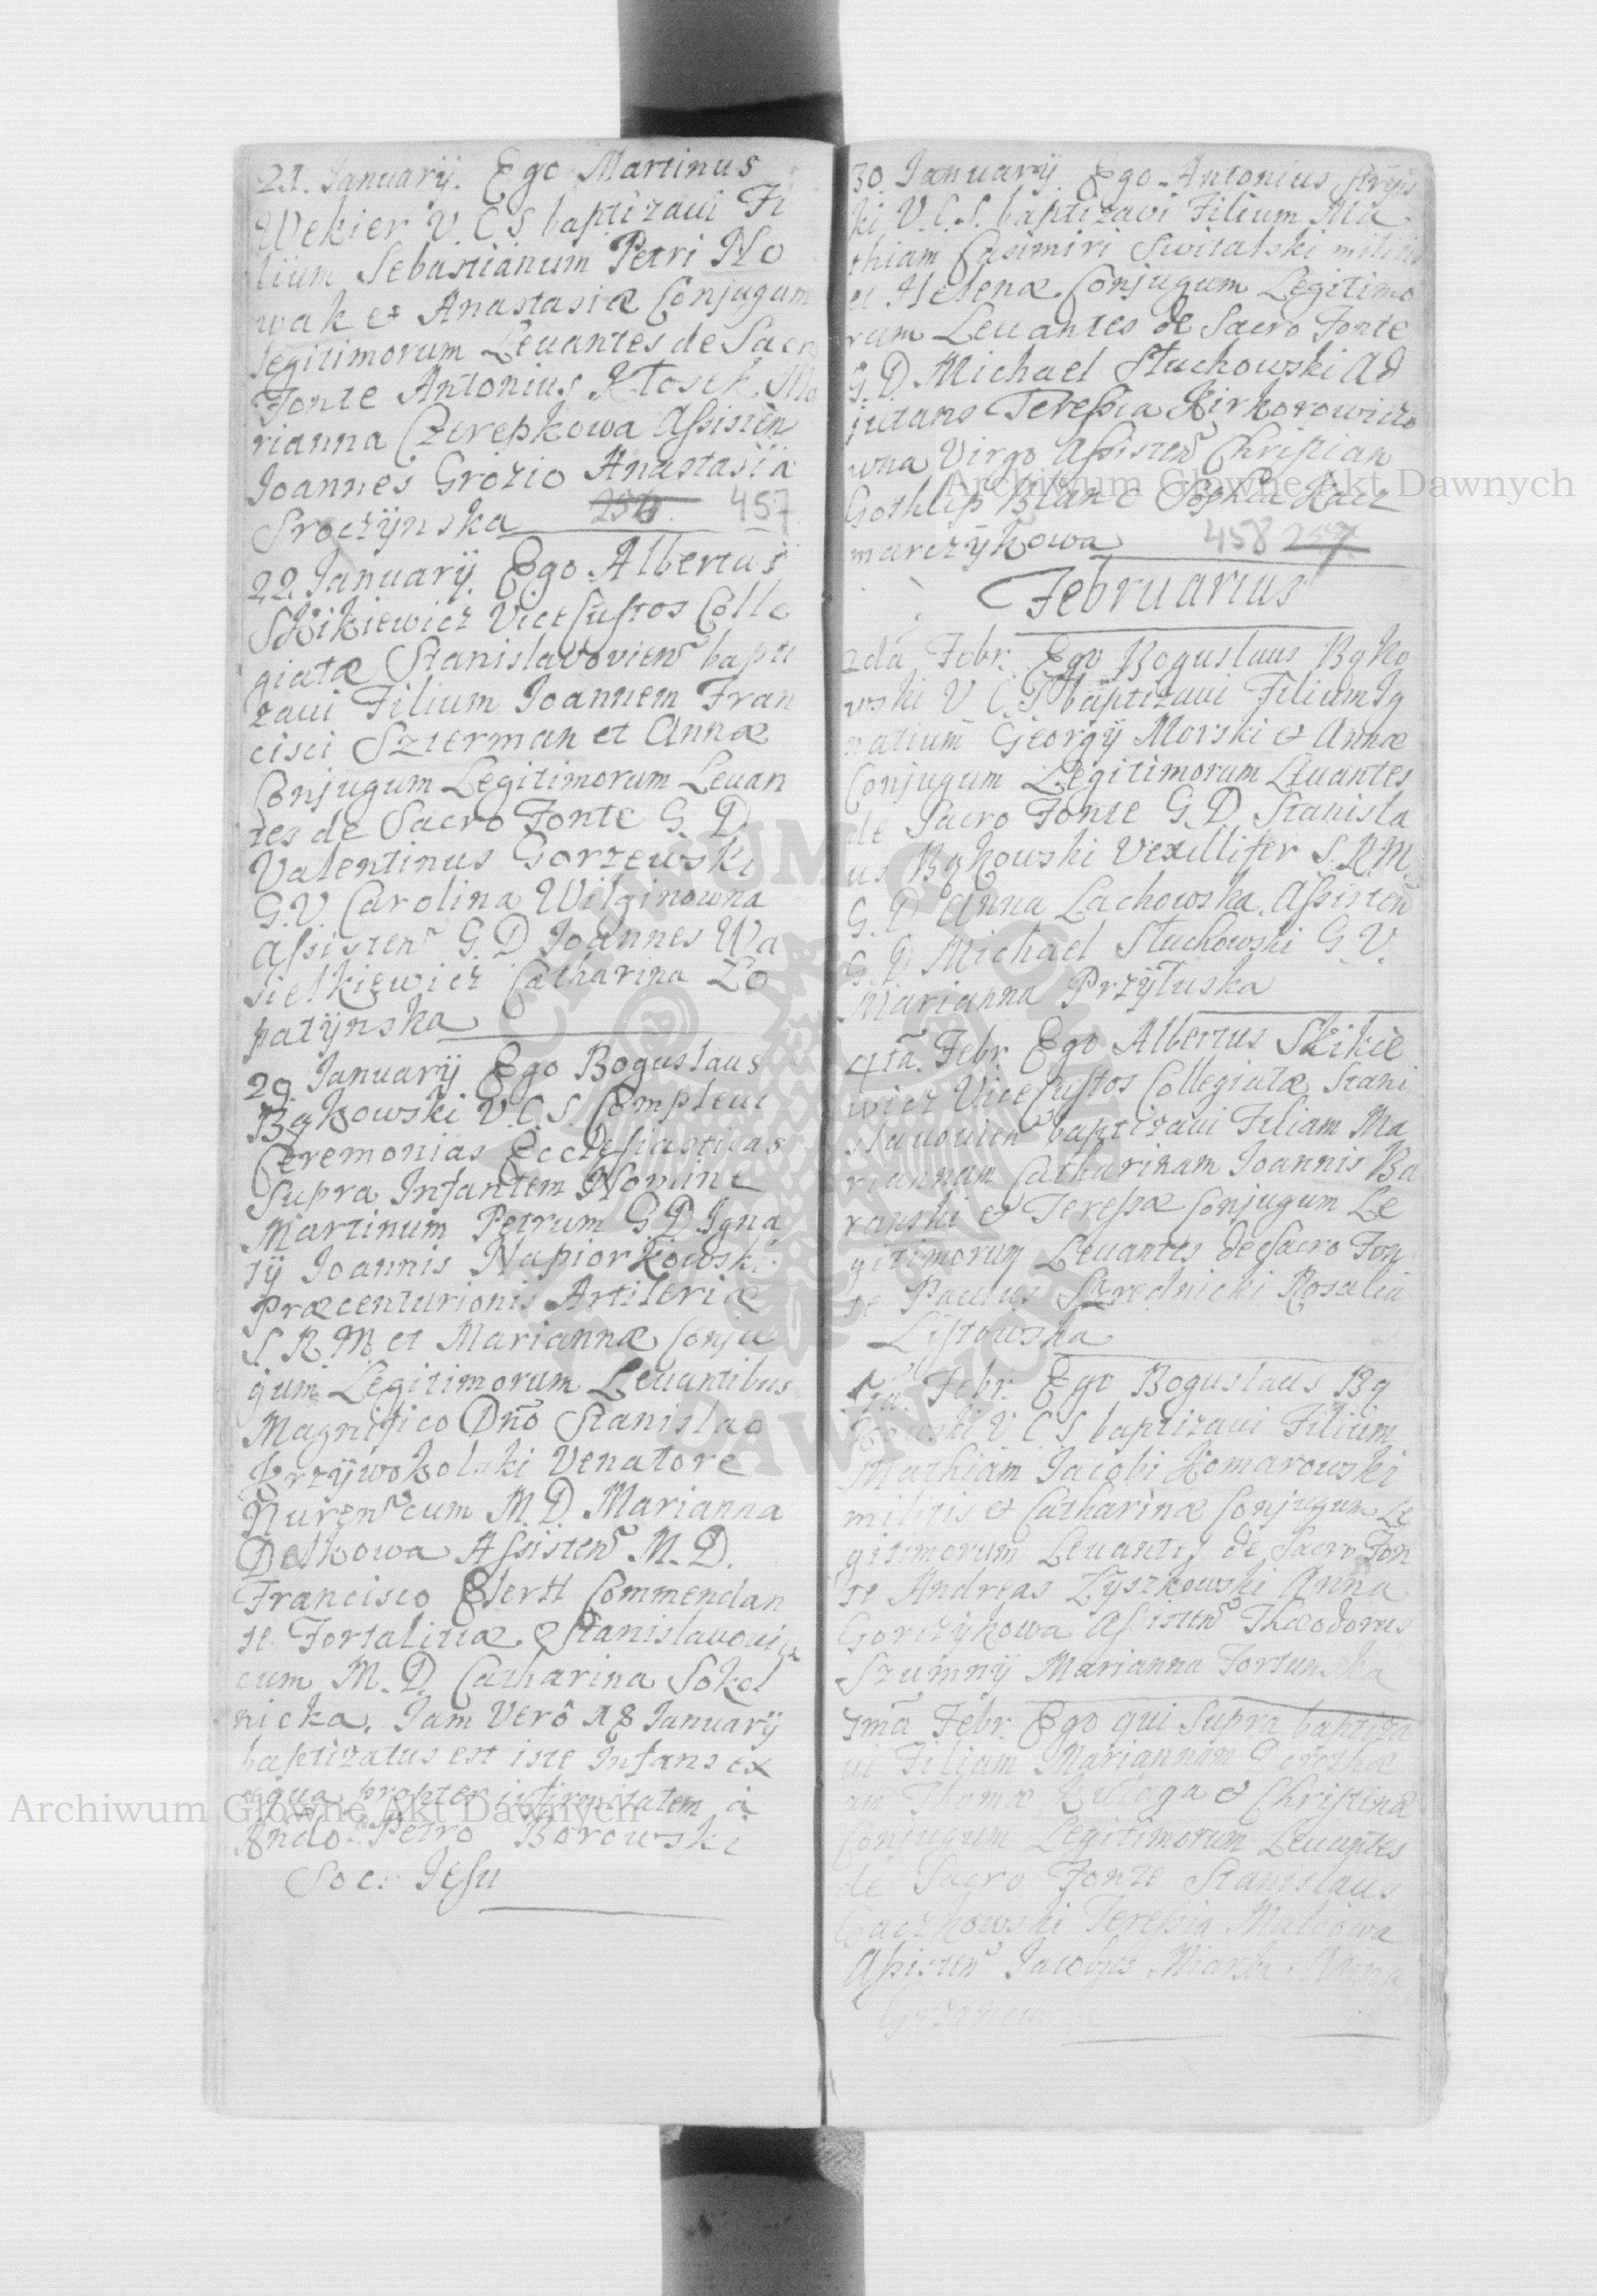 21. Januarÿ. Ego Martinus
Wekier V. C S baptizavi Fi
lium Sebastianum Petri No
wak et Anastasiæ Conjugum
legitimorum Levantes de Sacro
Fonte Antonius Kłosek Ma
rianna Czerepkowa Assisten
Joannes Grozio Anastasia
Sroczÿnska 457
22. Januarÿ. Ego Albertus
Skikiewicz ViceCustos Colle
giatæ Stanislavovien bapti
zavi Filium Joannem Fran
cisci Szterman et Annæ
Conjugum Legitimorum Levan
tes de Sacro Fonte G. D.
Valentinus Gorzewski
G.V. Carolina Wilginowna
Assisten G. D Joannes Wa
silkiewicz Catharina Lo
patÿnska
29. Januarÿ Ego Boguslaus
Bąkowski V.C.S. Complevi
Ceremonias Ecclesiasticas
Supra Infantem Nomine
Martinum Petrum G.D. Igna
tÿ Joannis Napiorkowski
Præcenturionis Artileriæ
S R M et Mariannæ Conju
gum Legitimorum Levantibus
Magnifico Dno Stanislao
Krzÿwokolski Venatore
Nuren cum M. D. Marianna
Deskowa Assisten M. D.
Francisco Elertt Commendan
te Fortalitiæ Stanislavovien
cum M. D. Catharina Sokol
nicka. Jam Verô 18 Januarÿ
baptizatus est iste Infans ex
aqua propter infirmitatem à
Rndo Petro Borowski
Soc: Jesu
30. Januarÿ. Ego Antonius Strÿis
ki V. C. S. baptizavi Filium Ma
thiam Casimiri Switalski militis
et Helenæ Conjugum Legitimo
rum Levantes de Sacro Fonte
G. D. Michael Stuchowski Ad
jutans Teressia Kirkorowiczo
wna Virgo Assisten Christian
Gothlip Blanc Sophia Kacz
marczÿkowa 458 257
Februarius
2da Febr. Ego Boguslaus Bąko
wski V C S baptizavi Filium Ig
natium Georgÿ Morski et Annæ
Conjugum Legitimorum Levantes
de Sacro Fonte G. D. Stanisla
us Bąkowski Vexillifer S.R.M.
G. D Anna Lachowska. Assisten
G. D Michael Stuchowski G. V.
Marianna Przÿłuska
4ta Febr. Ego Albertus Skikie
wicz ViceCustos Collegiatæ Stani
slavovien baptizavi Filiam Ma
riannam Catharinam Joannis Ba
ranski et Teressæ Conjugum Le
gitimorum Levantes de Sacro Fon
te Paulus Srednicki Rosalia
Listowska
5ta Febr. Ego Boguslaus Bą
kowski V C S baptizavi Filium
Mathiam Jacobi Komarowski
militis et Catharinæ Conjugum Le
gitimorum Levantes de Sacro Fon
te Andreas Zÿszkowski Anna
Gorczÿkowa Assisten Thæodorus
Szumnÿ Marianna Fortunska
7ma Febr. Ego qui Supra baptiza
vi Filiam Mariannam Dorothe
am Thomæ Kulaga et Christinæ
Conjugum Legitimorum Levantes
de Sacro Fonte Stanislaus
Gaczkowski Teressia
Assisten Jacobus Anna
Archiwum Główne Akt Dawnych
Archiwum Główne Akt Dawnych